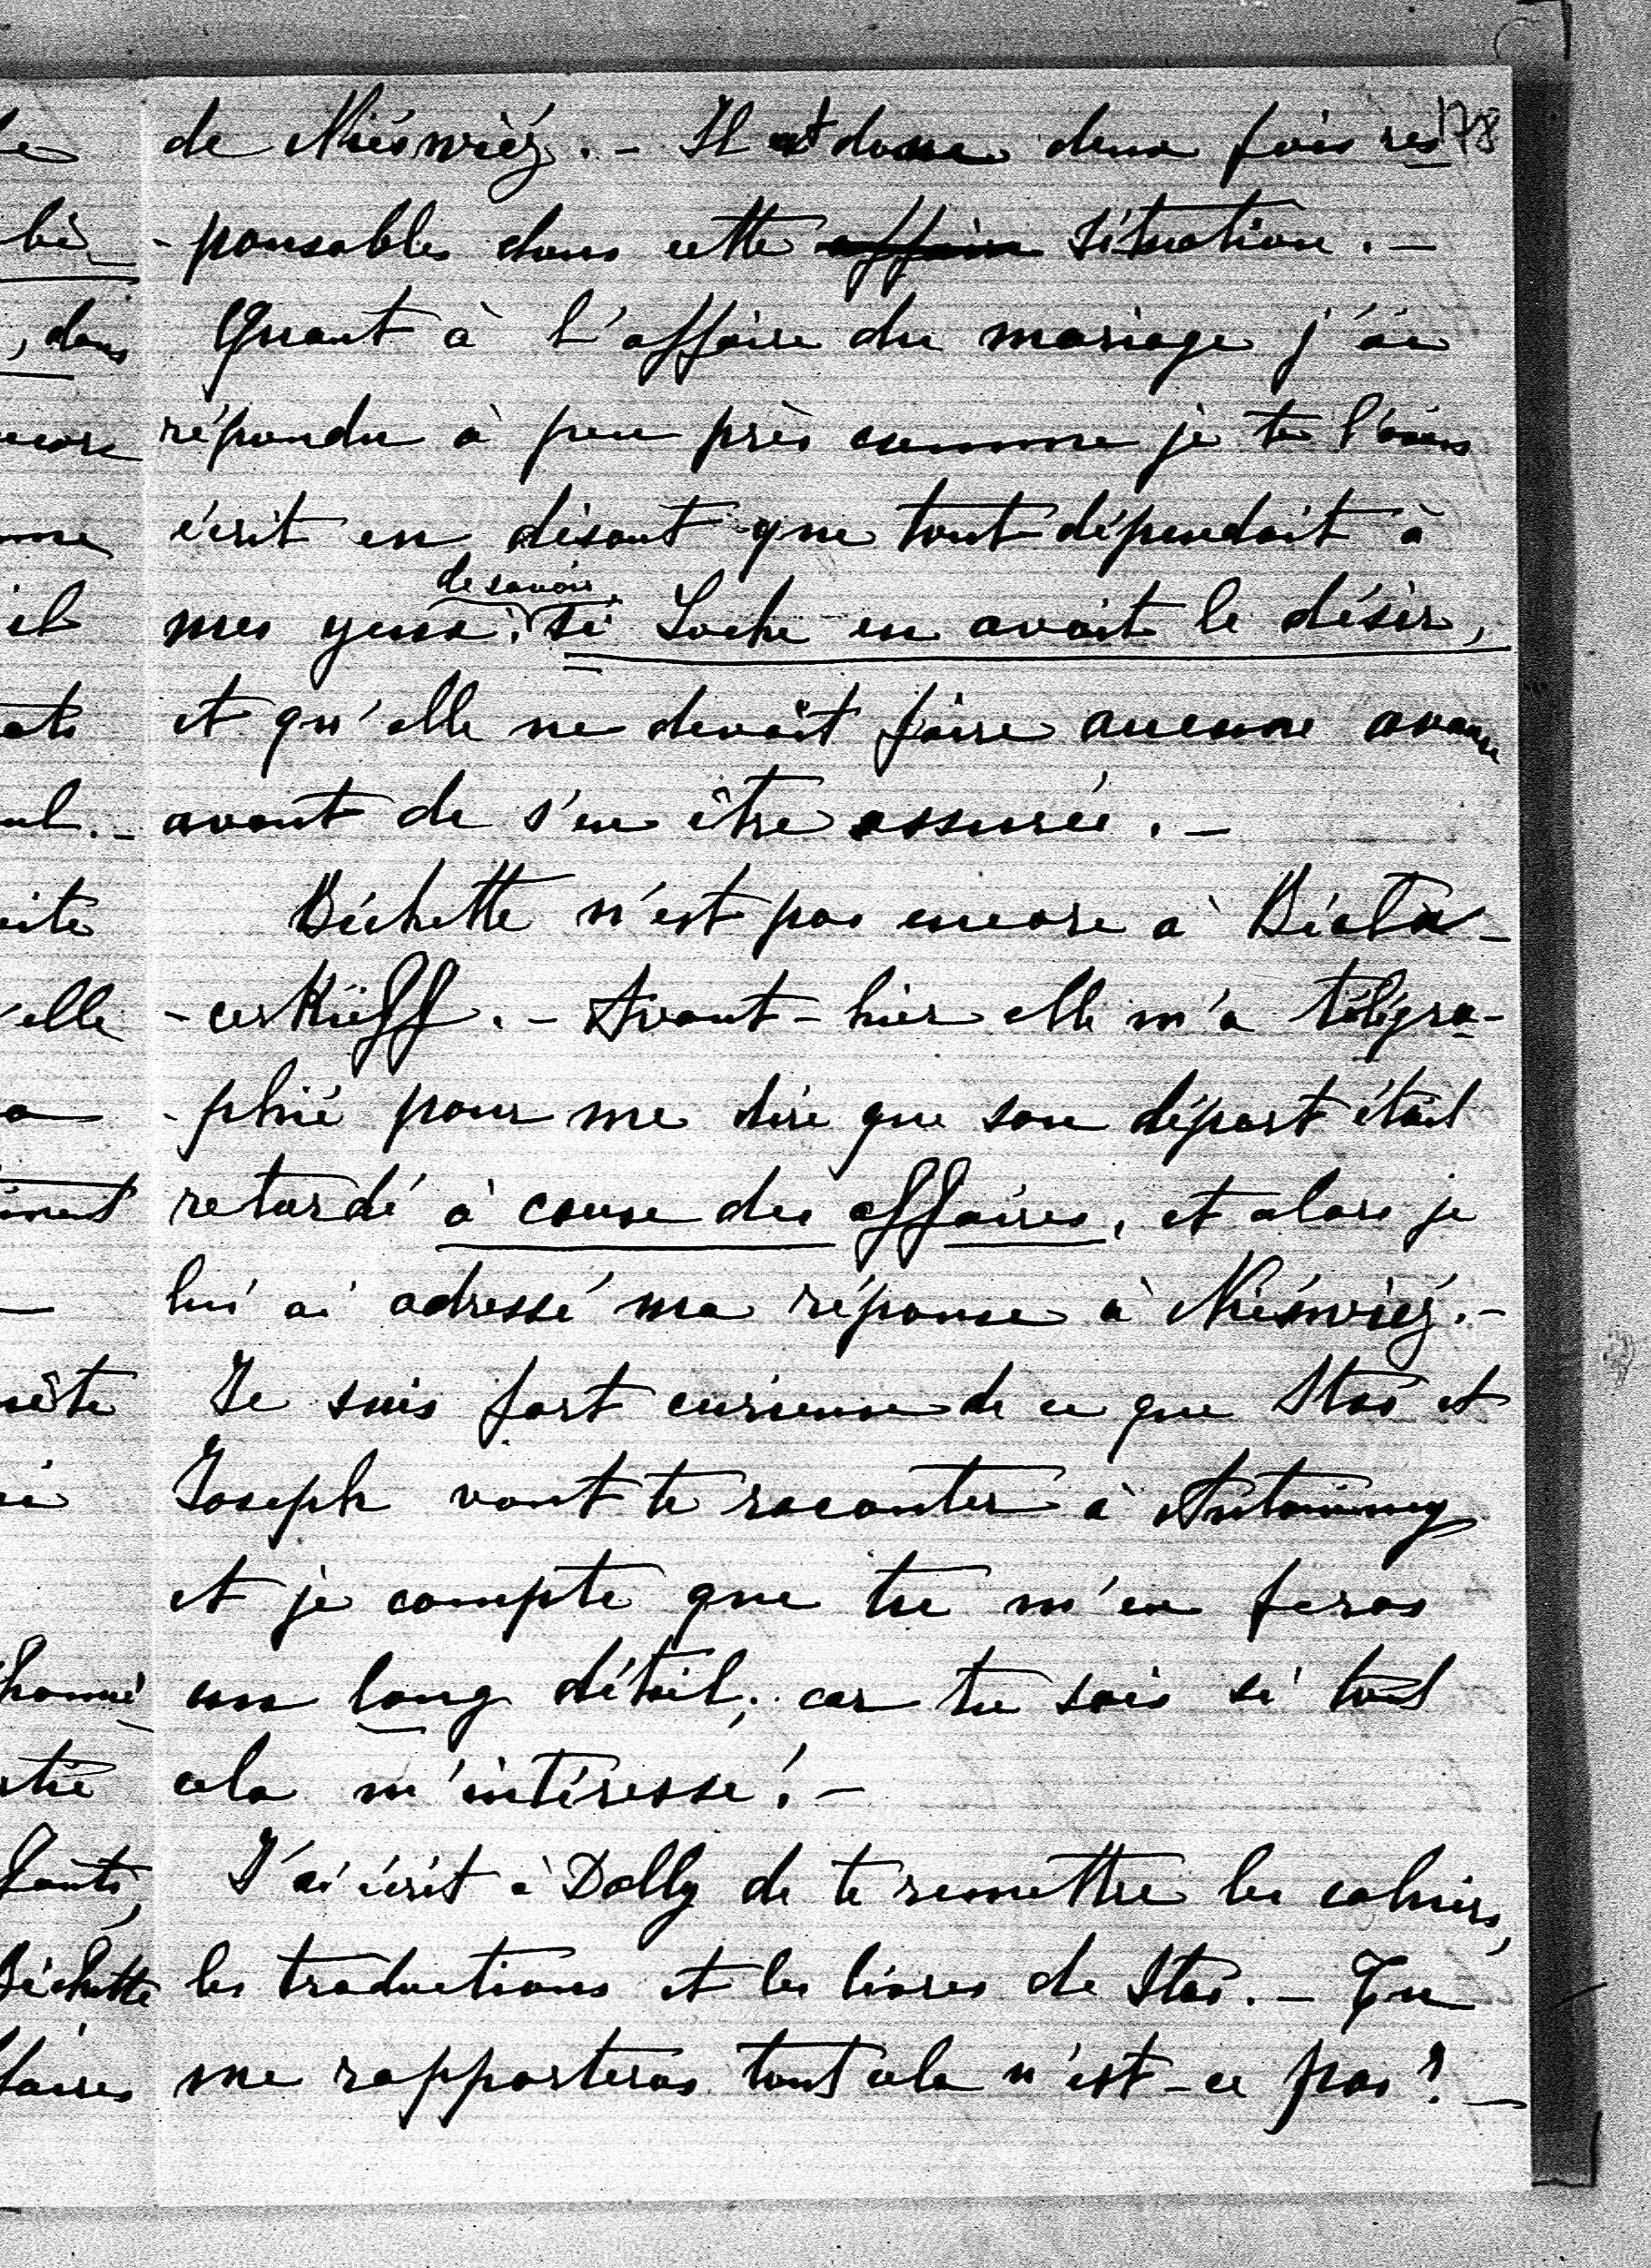 178
de Niéswiéz. - Il est donc deux fois res
-ponsables dans cette affaire situation. -
Quant à l'affaire du mariage j'ai
répondu à peu près comme je te l'avais
écrit en disant que tout dépendait à
de savoir
mes yeux: si Loche en avait le désir,
et qu'elle ne devait faire aucune avance
avant de s'en être assurée. -
Bichette n'est pas encore à Biala-
-cerkieff. - Avant-hier elle m'a télégra-
-phié pour me dire que son départ était
retardé à cause des affaires, et alors je
lui ai adressé ma réponse à Niéswiéz. -
Je suis fort curieuse de ce que Stas et
Joseph vont te raconter à Antoniny
et je compte que tu m'en feras
un long détail; car tu sais si tout
cela m'intéresse! -
J'ai écrit à Dolly de te remettre les cahiers,
les traductions et les livres de Stas. - Tu
me rapporteras tout cela n'est-ce pas? -